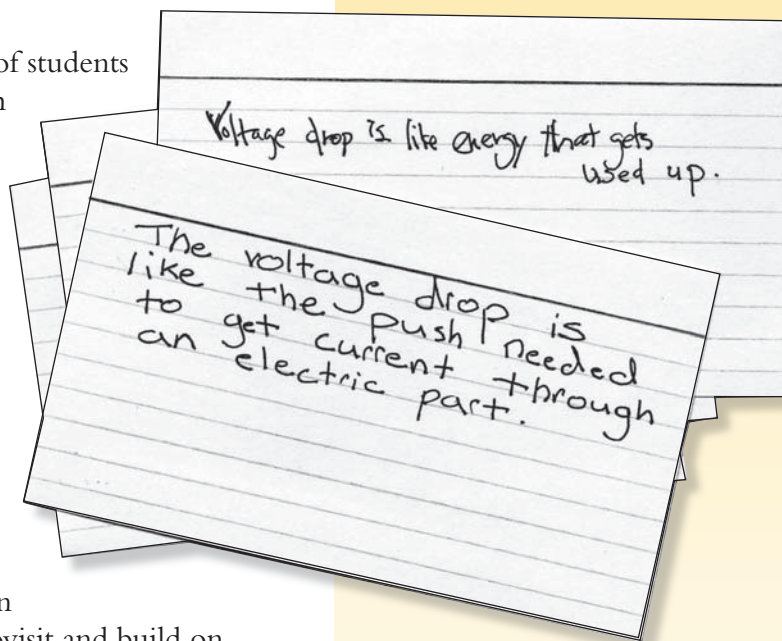 of students
Voltage drop is like energy that gets
used up.
The voltage drop is
like the push needed
to get current through
an electric part.
visit and build on